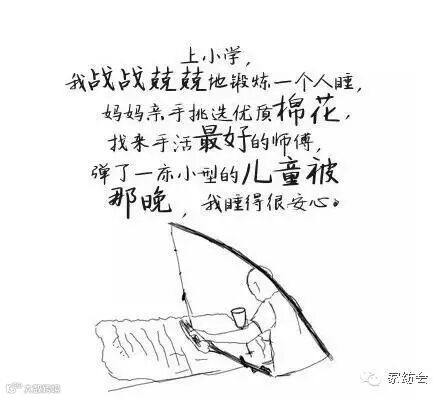 上小学，
我战战兢兢地锻炼一个人睡，
妈妈亲手挑选优质棉花，
找来手活最好的师傅，
弹了一床小型的儿童被
那晚，我睡得很安心。
家纺会